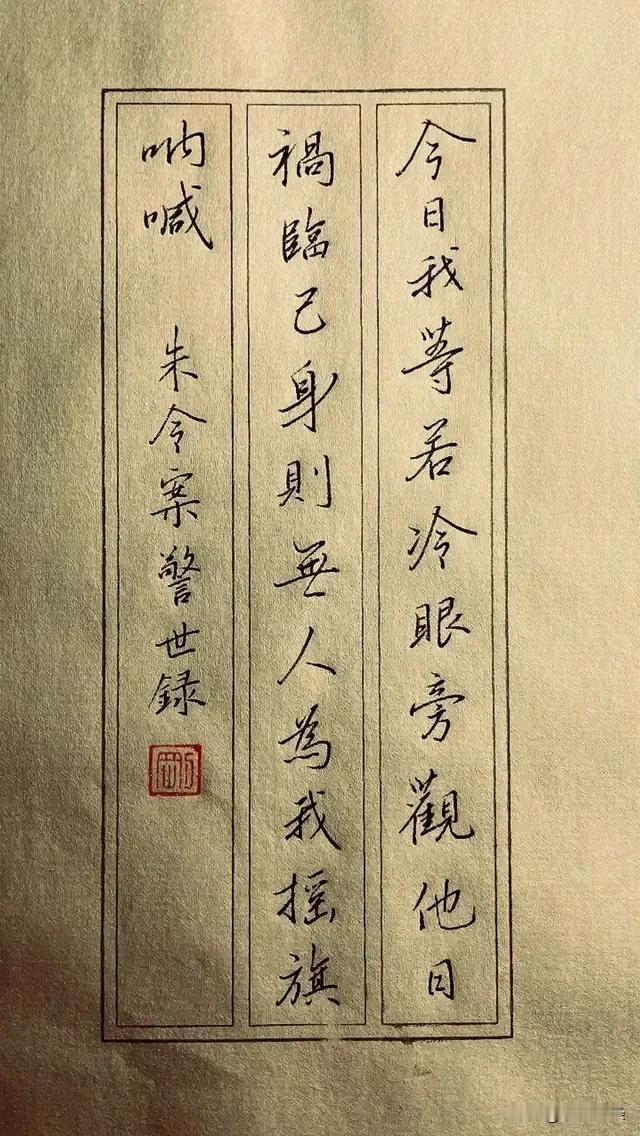 今日我等若冷眼旁觀他日
禍臨己身則無人為我摇旗
呐喊 朱令案警世録